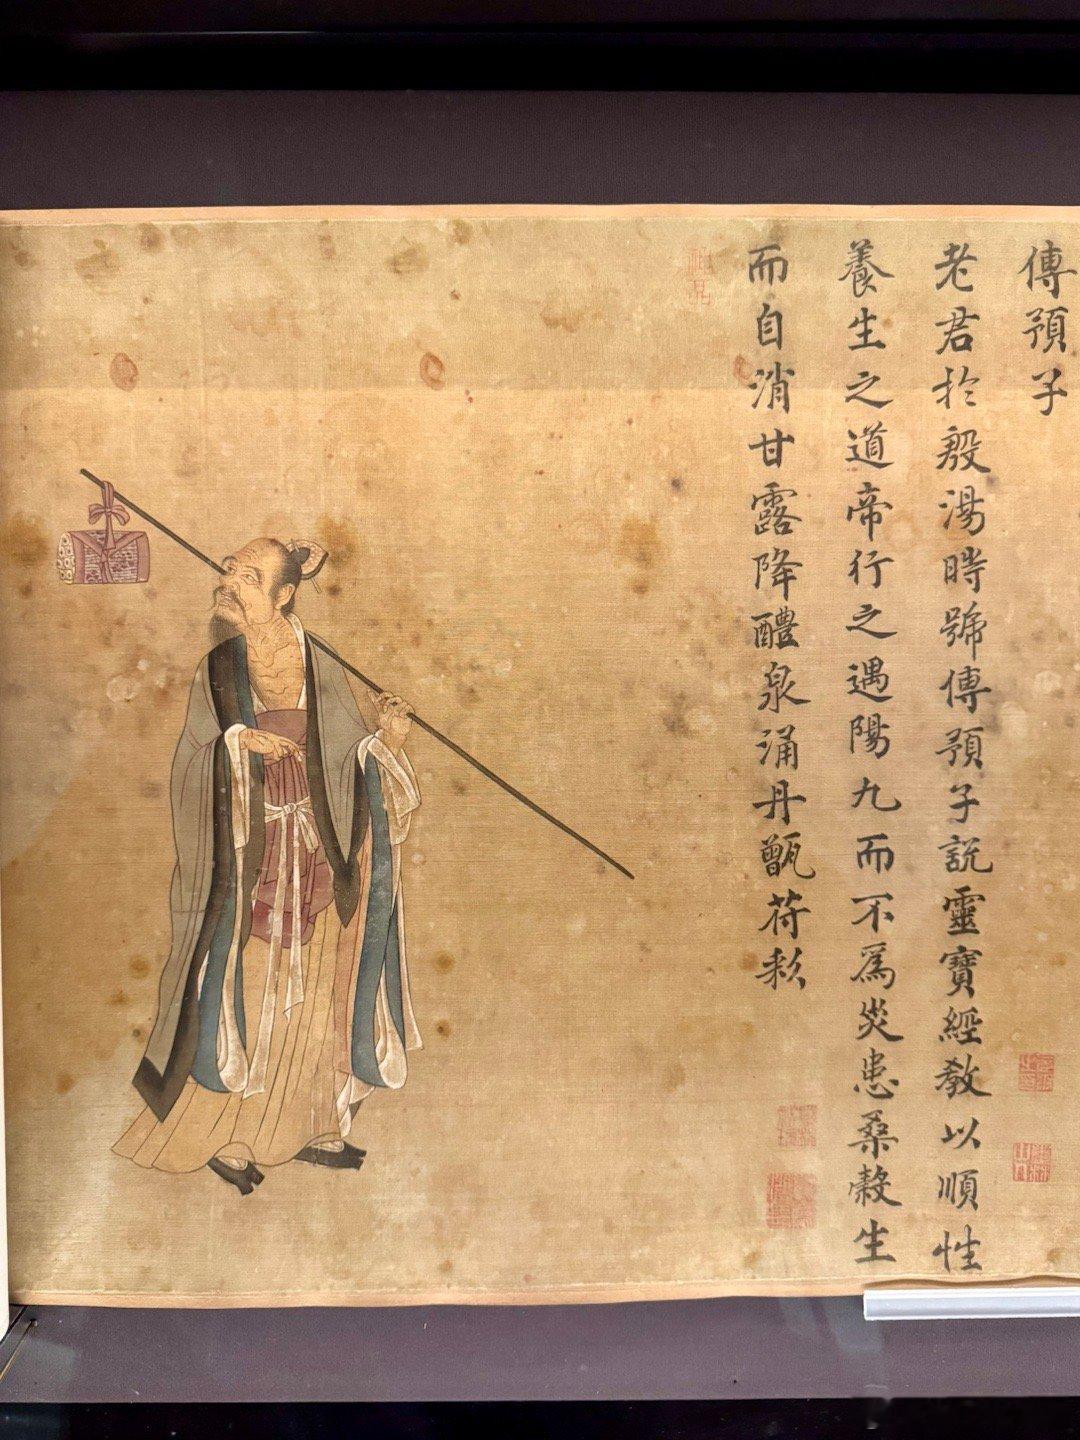 傳預子
老君於殷湯時號傳預子說靈寶經教以順性
養生之道帝行之遇陽九而不為災患桑穀生
而自消甘露降醴泉涌丹甑荷